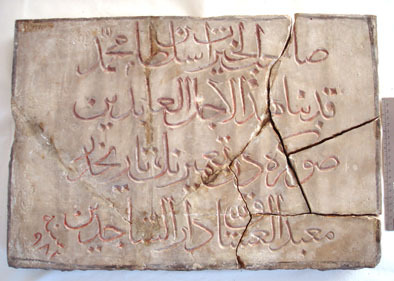 صاحب الخيرات سلطان محمد
قد بنا هذا لاجل العابدين
صوكره دن تعميرنك
معبد العشاق دار الساجدين